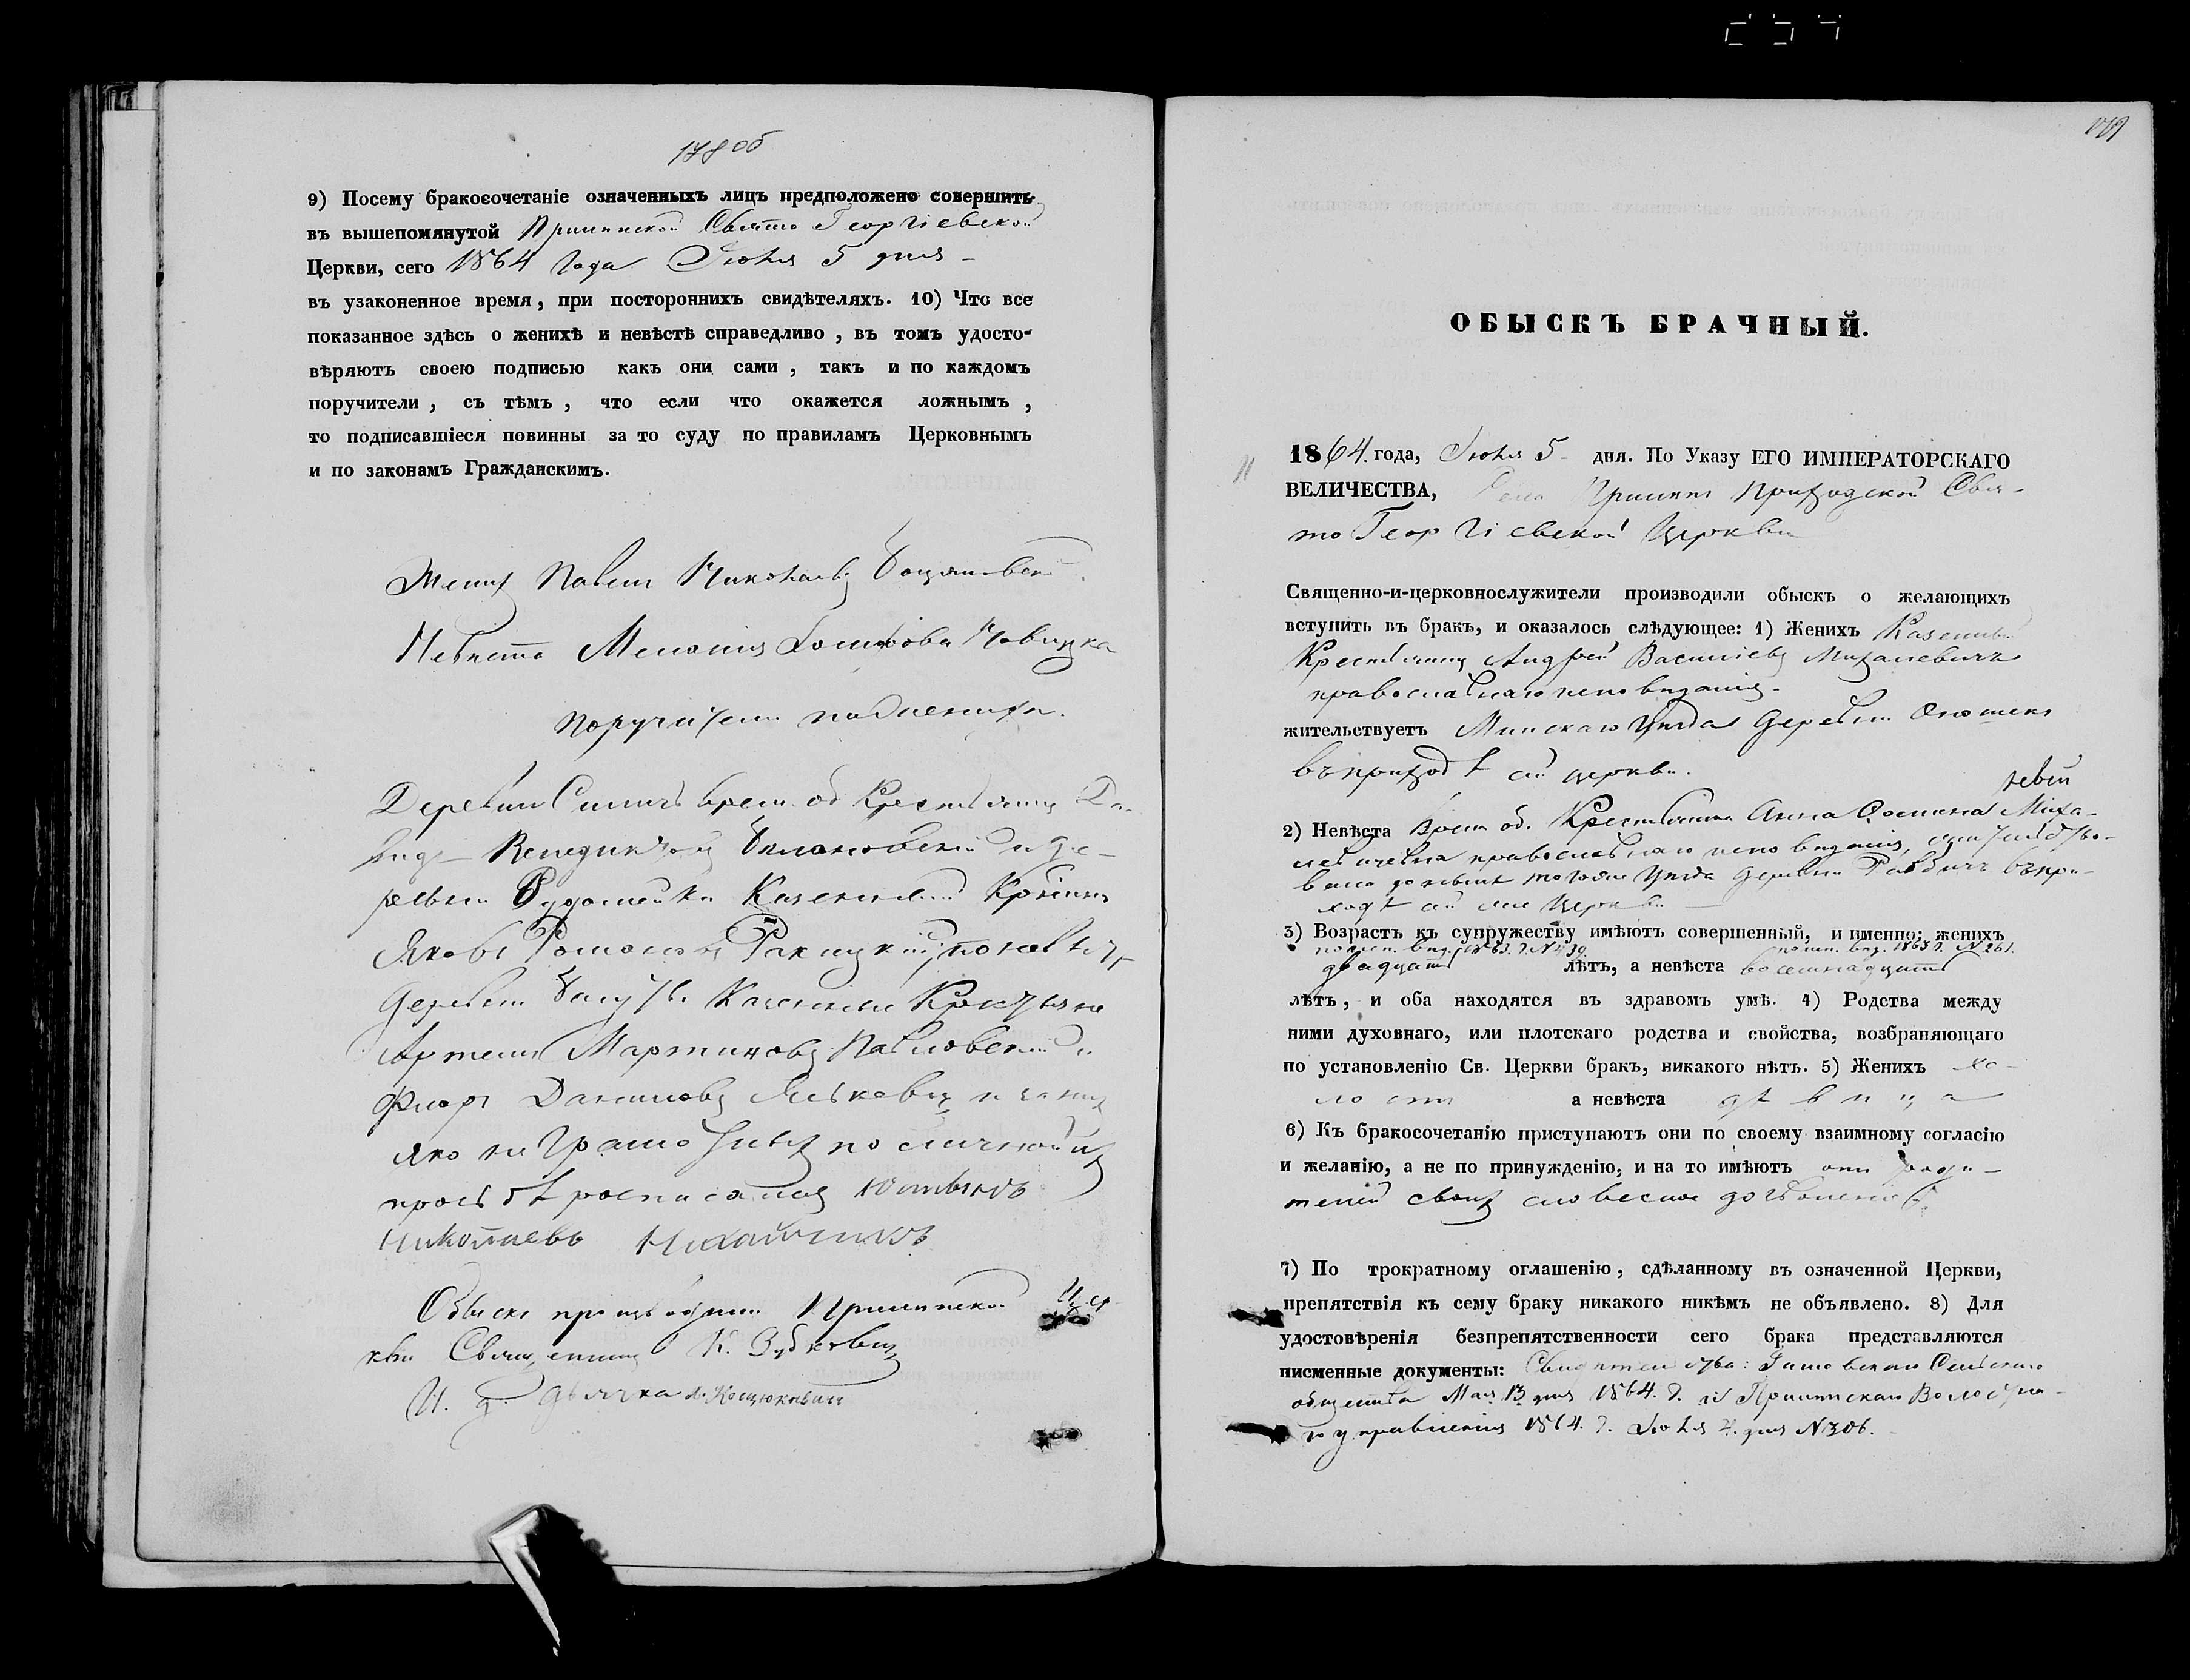 178 об
9) Посему бракосочетаніе означенныхъ лицъ предположено совершить
въ вышепомянутой Прилипской Свято Георгіевской
Церкви, сего 1864 года Іюля 5 дня
въ узаконенное время, при постороннихъ свидѣтеляхъ. 10) Что все
показанное здѣсь о женихѣ и невѣстѣ справедливо, въ томъ удосто-
вѣряютъ своею подписью какъ они сами, такъ и по каждомъ
поручители, съ тѣмъ, что если что окажется ложнымъ,
то подписавшіеся повинны за то суду по правиламъ Церковнымъ
и по законамъ Гражданскимъ.
Женихъ Павелъ Николаевъ
Невѣста Новицка
поручители по женихѣ
Деревни врем. об. Крестьянинъ Да-
видъ Венедиктовъ и де-
ревни Казенный
Яковъ Романовъ Ракицкій, по невѣстѣ
Деревни Казенные Крестьяне
Артемъ Мартиновъ Павловскій и
Флоръ Даниловъ и за нихъ
яко неграмотныхъ по личной ихъ
прозьбѣ росписался
Николаевъ
Обыскъ производили Прилипской Цер-
кви Священникъ К. Зубковичъ
И. д. дьячка
179
ОБЫСКЪ БРАЧНЫЙ.
11
1864 года, Іюля 5 дня. По Указу ЕГО ИМПЕРАТОРСКАГО
ВЕЛИЧЕСТВА, Прилипъ Приходской Свя-
то Георгіевской Церкви
Священно-и-церковнослужители производили обыскъ о желающихъ
вступить въ бракъ, и оказалось слѣдующее: 1) Женихъ Казенный
Крестьянинъ Андрей Васильевъ Михалевичъ
православнаго исповѣданія
жительствуетъ Минскаго Уѣзда Деревни
въ приходѣ сей церкви.
2) Невѣста врем. об. Крестьянка Анна Осипова Миха-
левичевна православнаго исповѣданія, жительство-
вала донынѣ того же Уѣзда Деревни въ при-
ходѣ сей же Церкви
3) Возрастъ къ супружеству имѣютъ совершенный, и именно: женихъ
двадцать лѣтъ, а невѣста восемнадцать
лѣтъ, и оба находятся въ здравомъ умѣ. 4) Родства между
ними духовнаго, или плотскаго родства и свойства, возбраняющаго
по установленію Св. Церкви бракъ, никакого нѣтъ. 5) Женихъ хо-
лостъ а невѣста дѣвица
6) Къ бракосочетанію приступаютъ они по своему взаимному согласію
и желанію, а не по принужденію, и на то имѣютъ отъ роди-
телей своихъ словесное дозволеніе
7) По трократному оглашенію, сдѣланному въ означенной Церкви,
препятствія къ сему браку никакого никѣмъ не объявлено. 8) Для
удостовѣренія безпрепятственности сего брака представляются
писменные документы: Свидѣтельство: Гатовскаго Сельскаго
общества Мая 13 дня 1864. г. и Прилипскаго Волостна-
го управленія 1864. г. Іюля 4. дня №306.